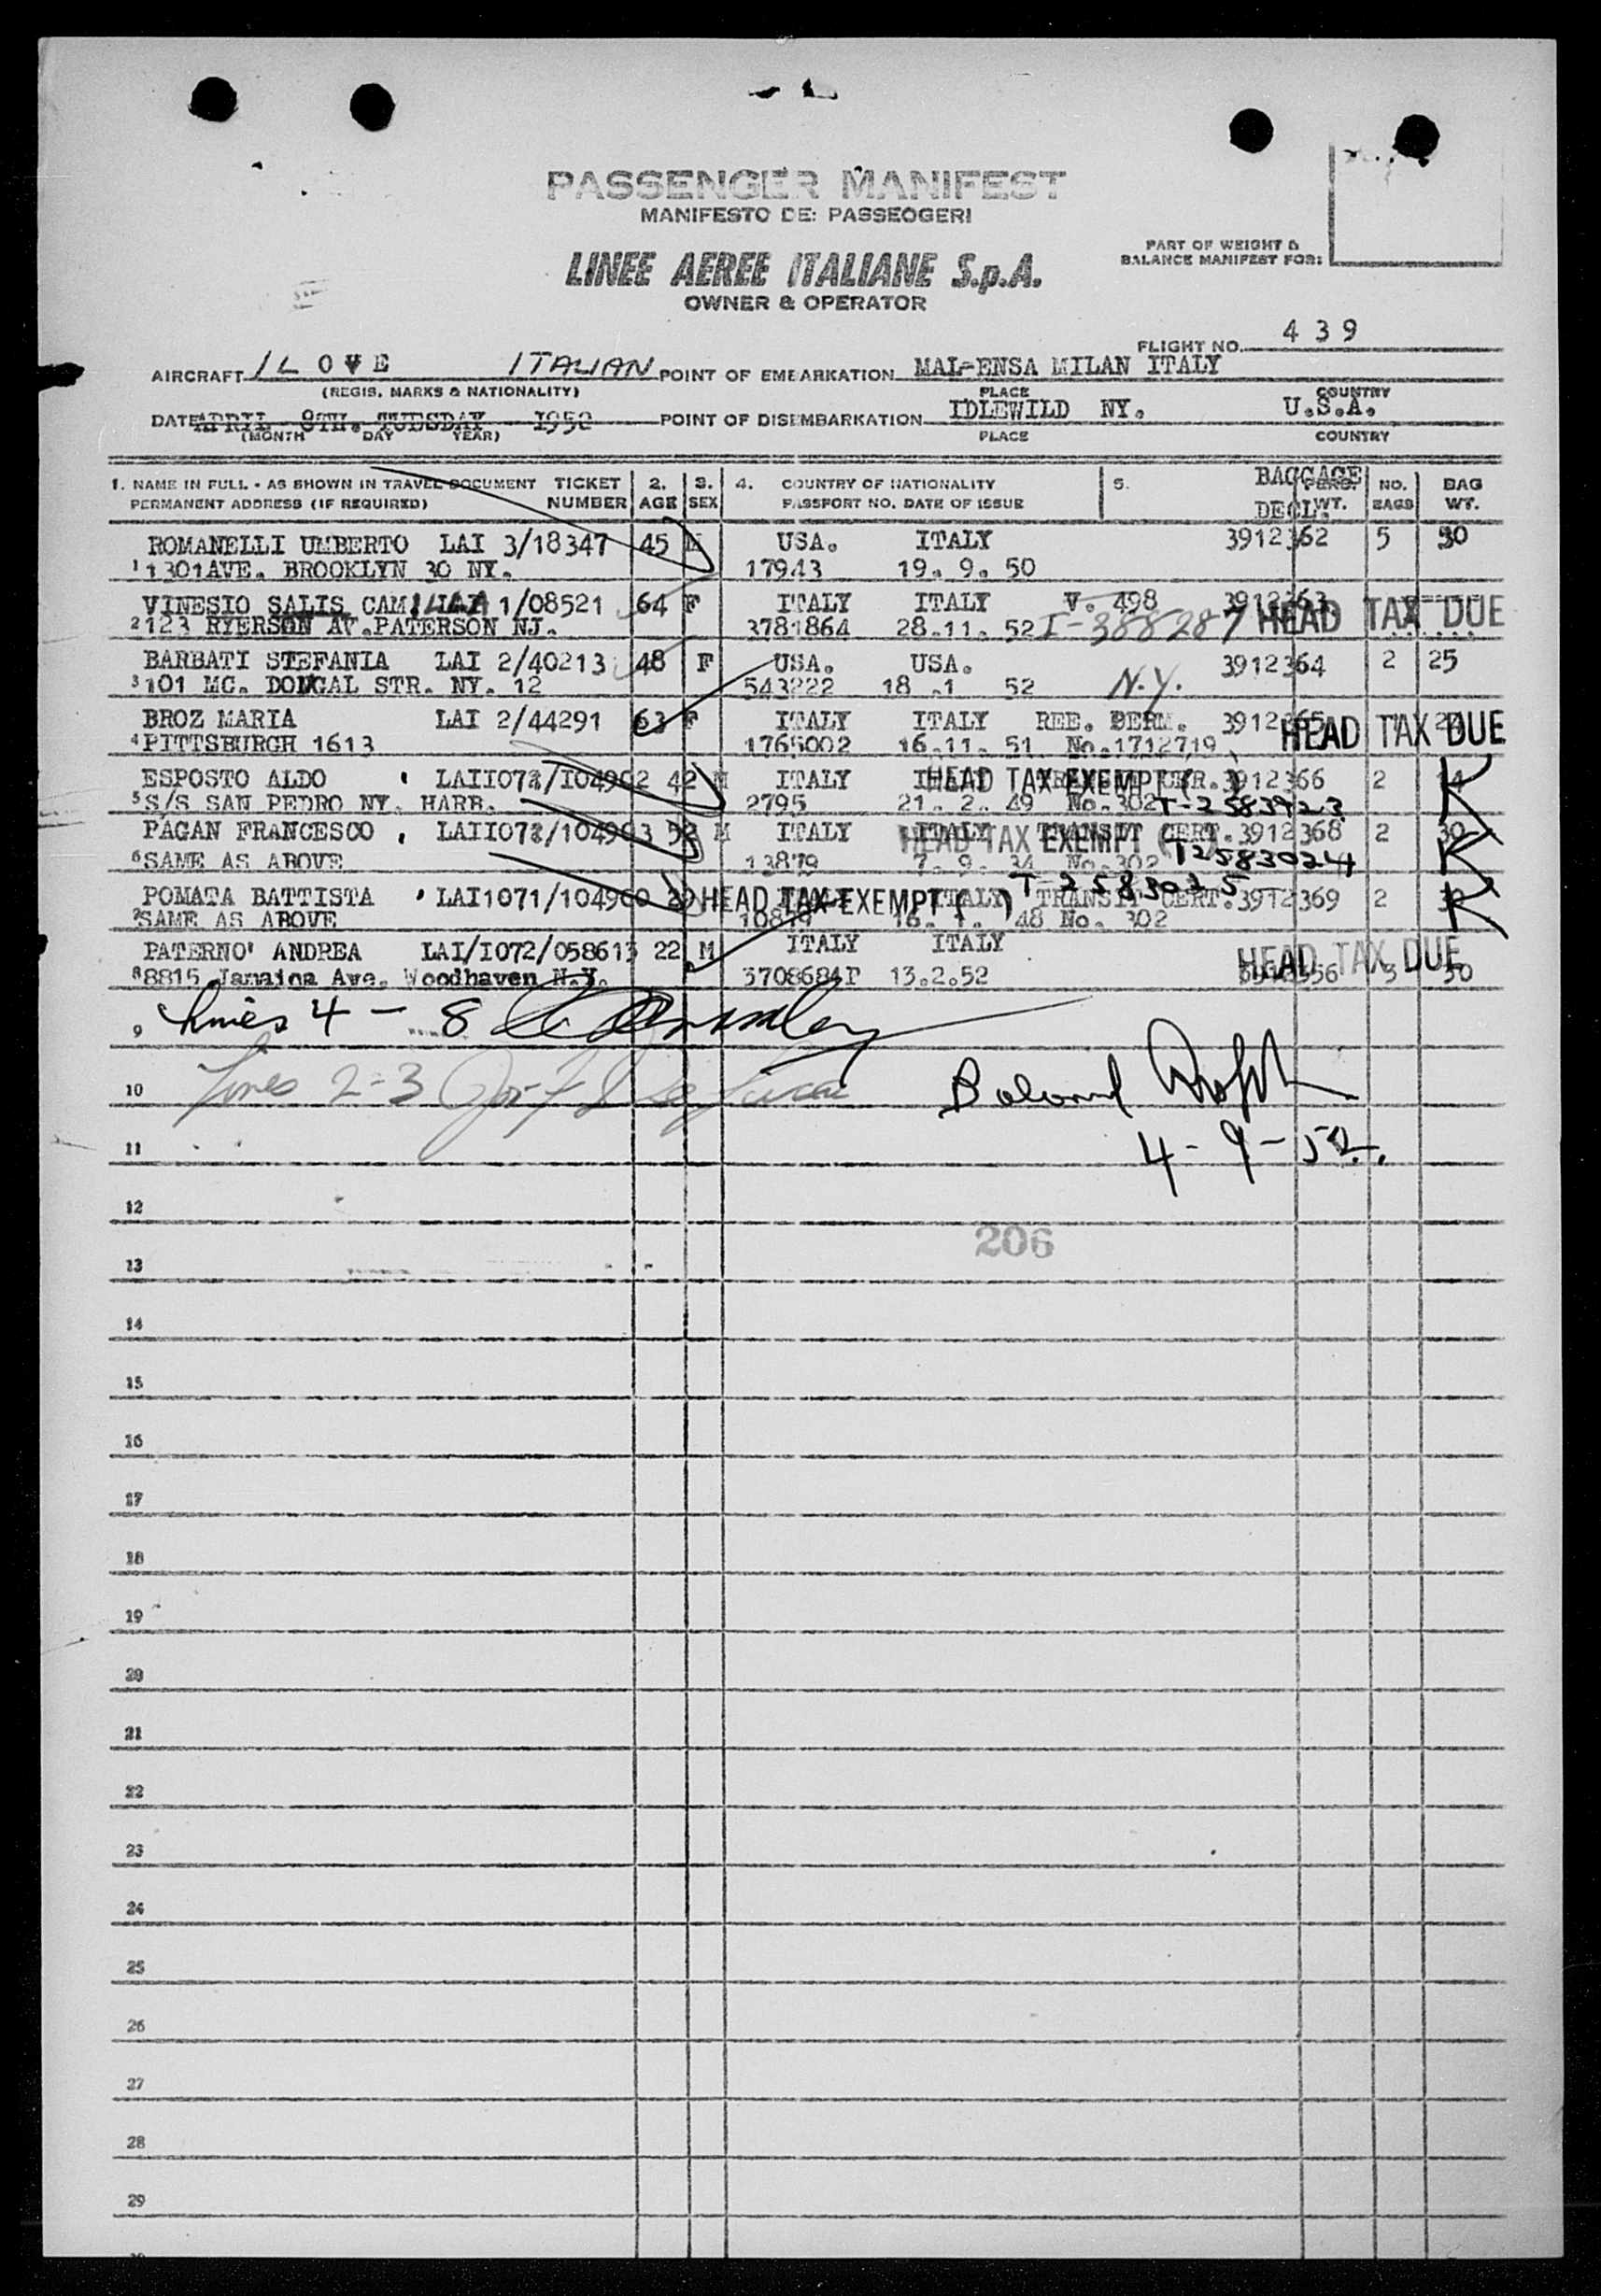 PASSENGER MANIFEST
MANIFESTO DE: PASSEOGERI
LINEE AEREE ITALIANE S.p.A.
OWNER & OPERATOR
PART OF WEIGHT &
BALANCE MANIFEST FOR:
FLIGHT NO. 439
AIRCRAFT I L O V E ITALIAN POINT OF EMBARKATION MALPENSA MILAN ITALY
(REGIS. MARKS & NATIONALITY) PLACE COUNTRY
DATE APRIL 8TH. TUDSDAY 1952 POINT OF DISEMBARKATION IDLEWILD NY. U.S.A.
(MONTH DAY YEAR) PLACE COUNTRY
1. NAME IN FULL - AS SHOWN IN TRAVEL DOCUMENT TICKET 2. 3. 4. COUNTRY OF NATIONALITY 5. BAGGAGE PERS. NO. BAG
PERMANENT ADDRESS (IF REQUIRED) NUMBER AGE SEX PASSPORT NO. DATE OF ISSUE DECL. WT. BAGS WT.
ROMANELLI UMBERTO LAI 3/18347 45 M USA. ITALY 3912362 5 30
1 1301AVE. BROOKLYN 30 NY. 17943 19. 9. 50
VINESIO SALIS CAMILLA 1/08521 64 F ITALY ITALY V. 498 3912363
2 123 RYERSON AV.PATERSON NJ. 3781864 28.11. 52 I-388287 HEAD TAX DUE
BARBATI STEFANIA LAI 2/40213 48 F USA. USA. 3912364 2 25
3 101 MC. DOUGAL STR. NY. 12 543222 18 .1 52 N.Y.
BROZ MARIA LAI 2/44291 63 F ITALY ITALY REE. PERM. 3912365 HEAD TAX DUE
4 PITTSBURGH 1613 1765002 16.11. 51 No.1712719
ESPOSTO ALDO LAII072/I04902 42 M ITALY HEAD TAX EXEMPT ( ) 3912366 2 K
5 S/S SAN PEDRO NY. HARB. 2795 21. 2. 49 No.302 T-2583923
PAGAN FRANCESCO LAII072/104903 M ITALY ITALY HEAD TAX EXEMPT ( ) TRANSIT CERT.3912368 2 30 K
6 SAME AS ABOVE 13879 7. 9. 34 No.302 T2583024
POMATA BATTISTA LAI1071/104960 HEAD TAX EXEMPT ( ) ITALY T-2583025 TRANSIT CERT.3912369 2 K
7 SAME AS ABOVE 16. 1. 48 No. 302
PATERNO' ANDREA LAI/I072/058613 22 M ITALY ITALY HEAD TAX DUE
8 8815 Jamaica Ave. Woodhaven N.Y. 3708684P 13.2.52 3 30
9 Lines 4 - 8
10 Lines 2-3
11 4-9-52.
12
206
13
14
15
16
17
18
19
20
21
22
23
24
25
26
27
28
29